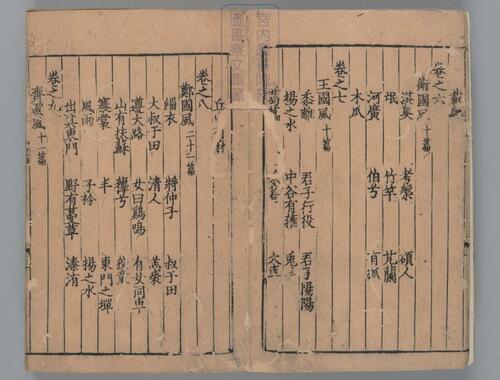 卷之六
衛國風 十篇
淇奧 考槃 碩人
氓 竹竿 芄蘭
河廣 伯兮 有狐
木瓜
卷之七
王國風 十篇
黍離 君子行役 君子陽陽
揚之水 中谷有蓷 兔爰
卷之八
鄭國風 二十一篇
緇衣 將仲子 叔于田
大叔于田 清人 羔裘
遵大路 女曰鷄鳴 有女同車
山有扶蘇 蘀兮
褰裳 丰 東門之墠
風雨 子衿 揚之水
出其東門 野有蔓草 溱洧
卷之九
齊國風 十一篇